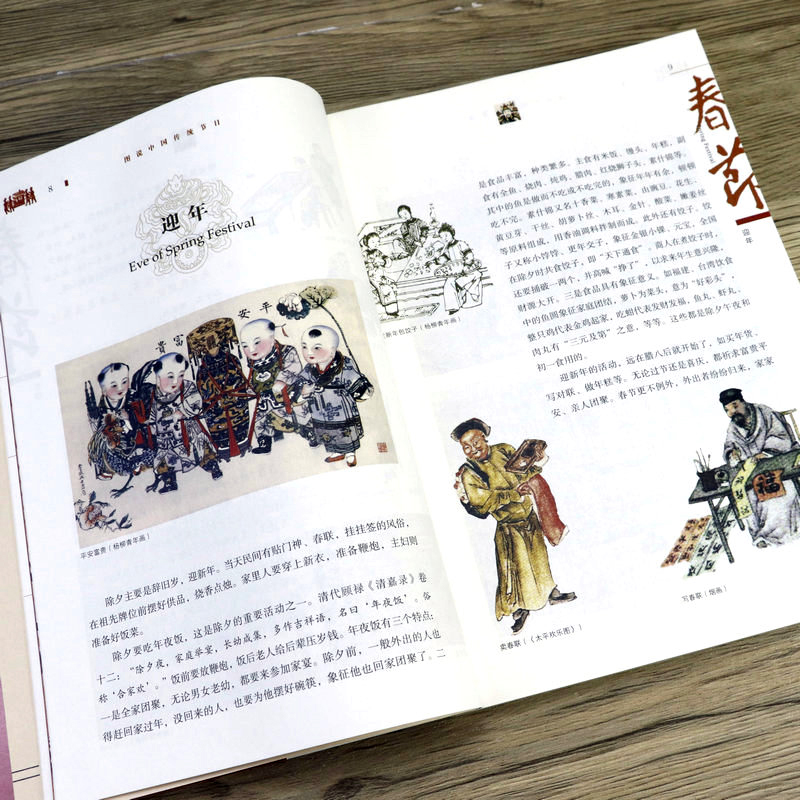 8
图说中国传统节日
迎年
Eve of Spring Festival
平安
富贵
平安富贵（杨柳青年画）
除夕主要是辞旧岁，迎新年。当天民间有贴门神、春联，挂挂签的风俗，
在祖先牌位前摆好供品，烧香点烛。家里人要穿上新衣，准备鞭炮，主妇则
准备好饭菜。
除夕要吃年夜饭，这是除夕的重要活动之一。清代顾禄《清嘉录》卷
十二：“除夕夜，家庭举宴，长幼咸集，多作吉祥语，名曰‘年夜饭’。俗
称‘合家欢’。”饭前要放鞭炮，饭后老人给后辈压岁钱。年夜饭有三个特点：
一是全家团聚，无论男女老幼，都要来参加家宴。除夕前，一般外出的人也
得赶回家过年，没回来的人，也要为他摆好碗筷，象征他也回家团聚了。二
9
春节
Spring Festival
迎年
是食品丰富，种类繁多。主食有米饭、馒头、年糕，副
食有全鱼、烧肉、炖鸡、腊肉、红烧狮子头、素什锦等。
其中的鱼是做而不吃或不吃完的，象征年年有余，顿顿
吃不完。素什锦又名十香菜、寒素菜，由豌豆、花生、
黄豆芽、干丝、胡萝卜丝、木耳、金针、酸菜、嫩姜丝
等原料组成，用香油调料拌制而成。此外还有饺子，饺
子又称小饽饽、更年交子，象征金银小锞、元宝，全国
在除夕时共食饺子，即“天下通食”，商人在煮饺子时，
还要捅破一两个，并高喊“挣了”，以求来年生意兴隆，
财源大开。三是食品具有象征意义。如福建、台湾饮食
中的鱼圆象征家庭团结，萝卜为菜头，意为“好彩头”，
整只鸡代表金鸡起家，吃蚶代表发财发福，鱼丸、虾丸、
肉丸有“三元及第”之意，等等。这些都是除夕午夜和
初一食用的。
迎新年的活动，远在腊八后就开始了，如买年货、
写对联、做年糕等。无论过节还是喜庆，都祈求富贵平
安、亲人团聚。春节更不例外，外出者纷纷归来，家家
新年包饺子（杨柳青年画）
福
卖春联（《太平欢乐图》）
写春联（烟画）